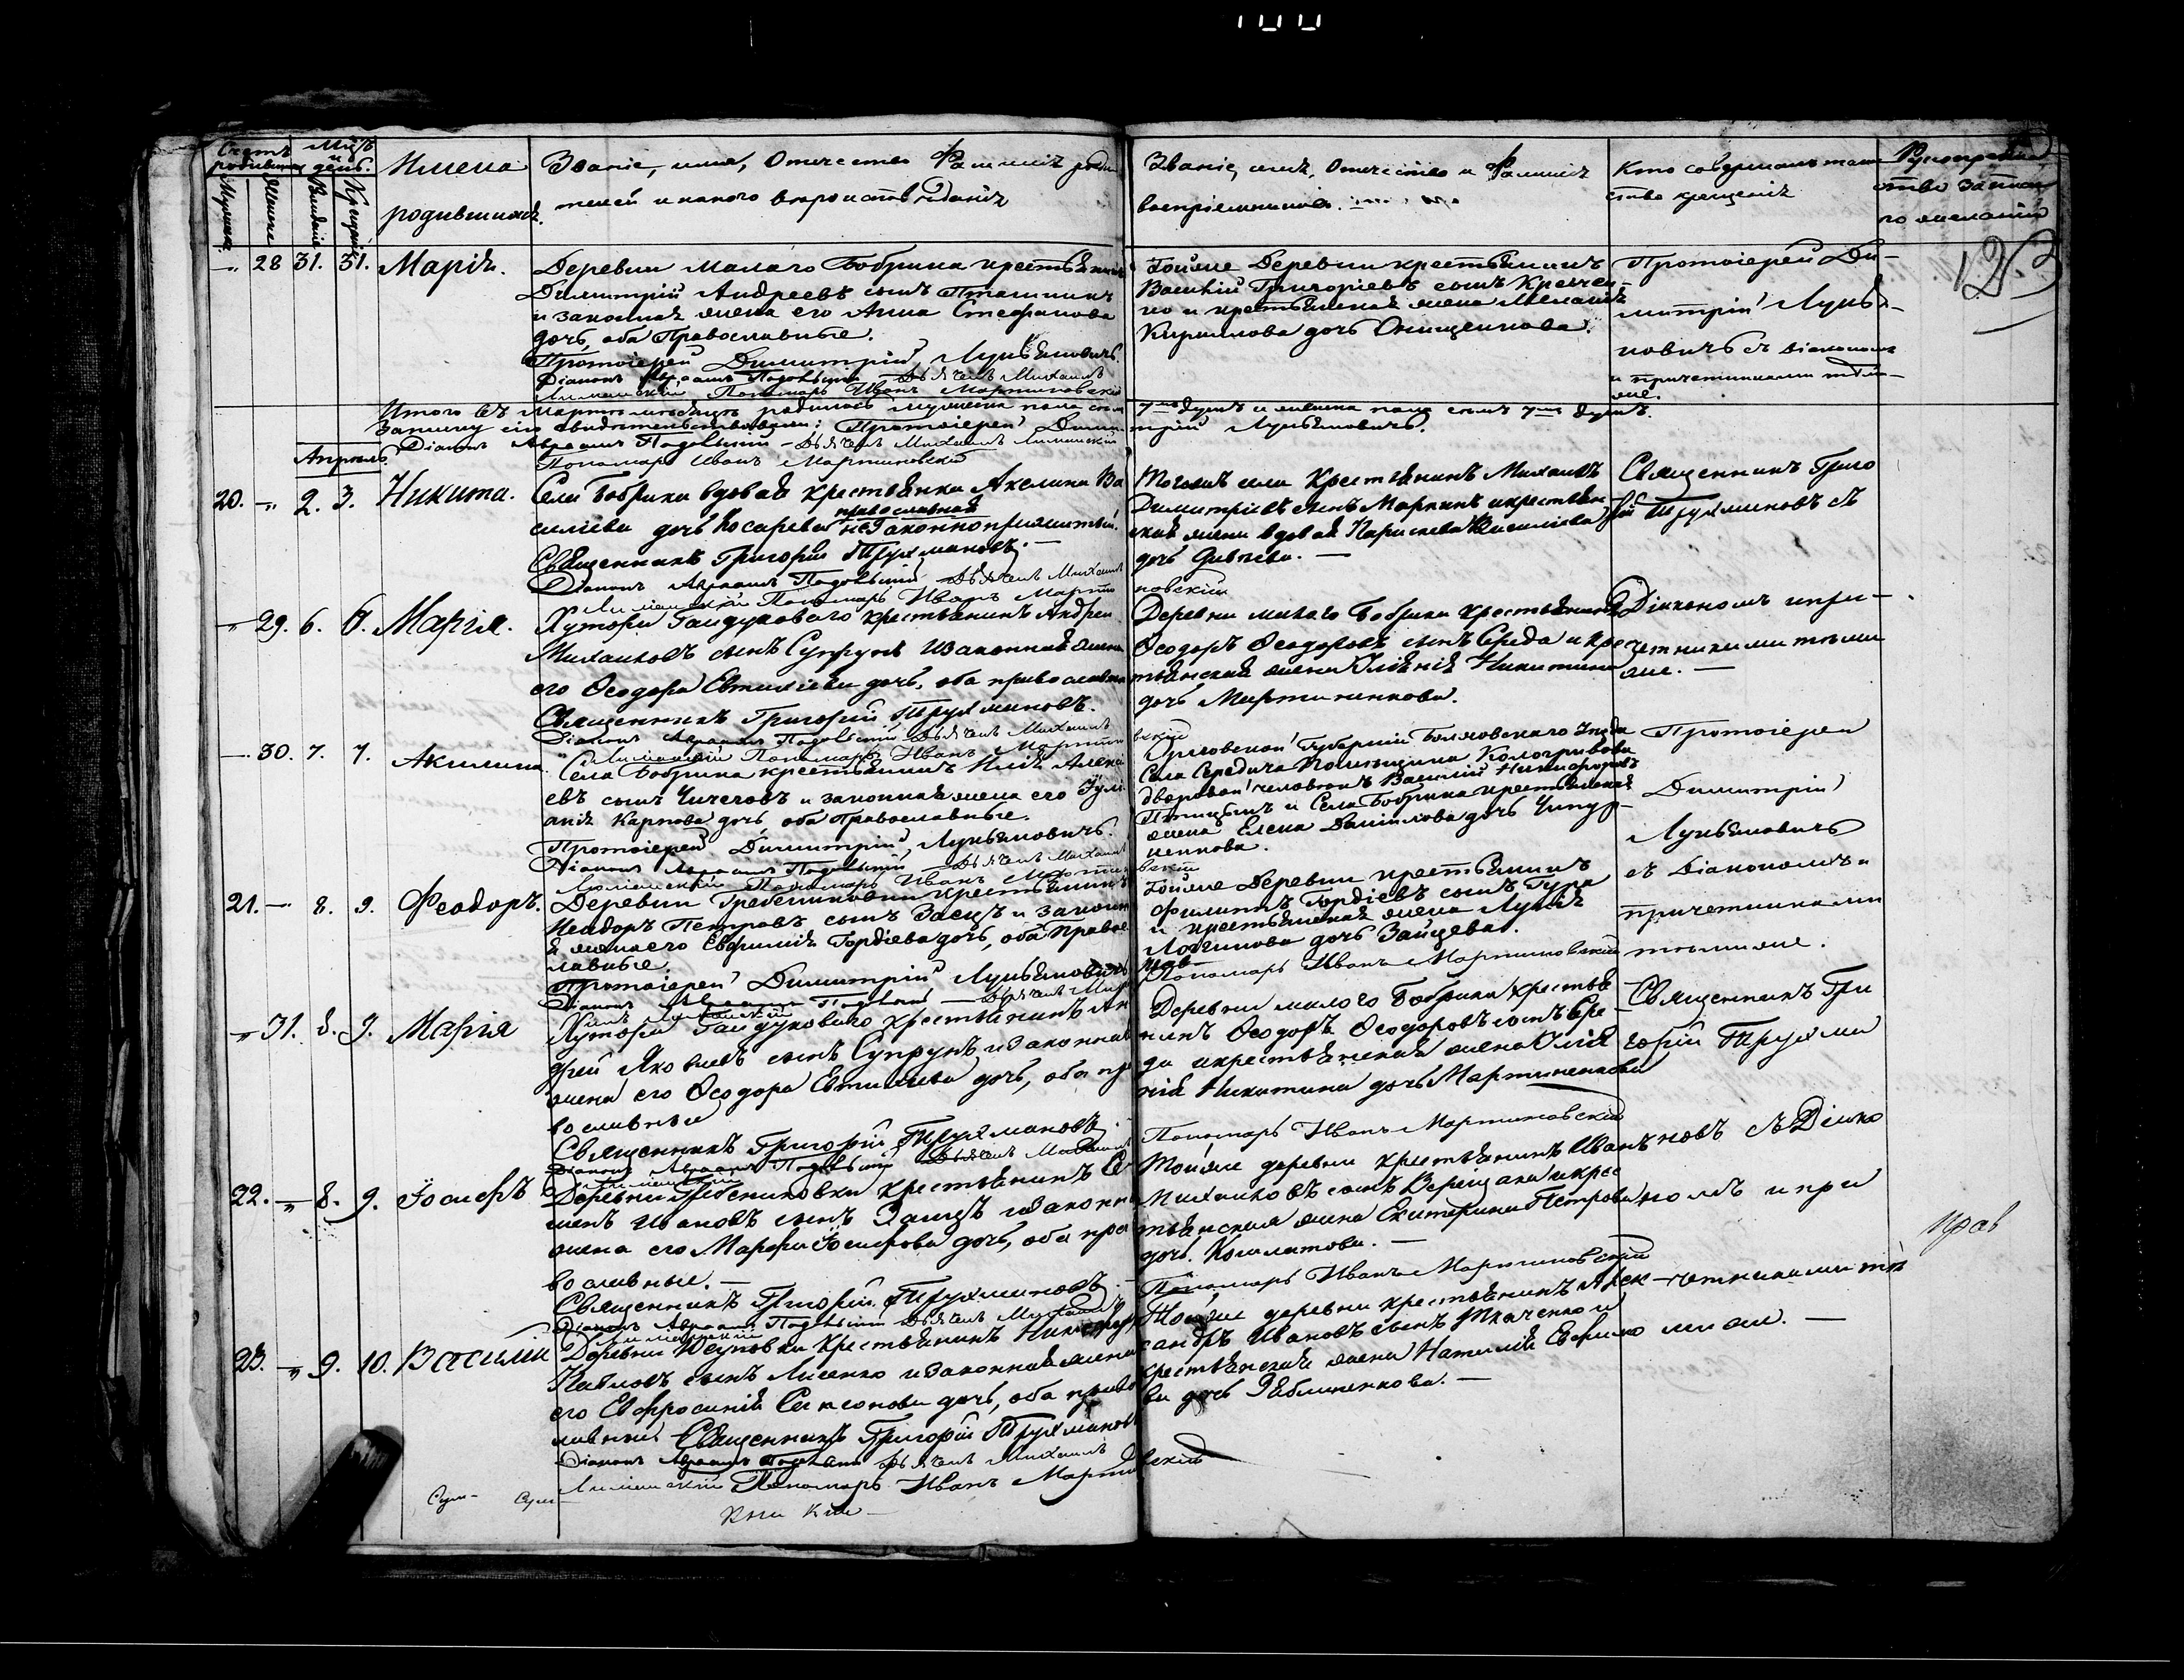 Счетъ родившихся
Мужеска
Женска
Мцъ и день.
Рожденія
Крещенія
Имена
родившихся.
Званіе, имя, Отчество Фамилія роди
телей и какого вероисповеданія
Званіе, имя, Отчество и Фамилія
воспріемниковъ
Кто совершалъ таин
ство крещенія
Рукоприклад
ство
по желанію
123
28 31. 31. Марія.
Деревни Малаго Бобрика крестьянинъ
Димитрій Андреевъ сынъ
и законная жена его Анна Стефанова
дочь, оба Православные.
Протоіерей Димитрій Лукьяновичъ.
Діаконъ Авраамъ Дьячекъ Михаилъ
Пономарь Иванъ Мартиновскій
Тойже Деревни крестьянинъ
Василій Григоріевъ сынъ Кравчен-
ко и крестьянская жена Меланія
Кириллова дочь Онищенкова.
Протоіерей Ди-
митрій Лукья-
новичъ съ Діакономъ
и причетниками тѣми-
же.
Итого въ Мартѣ мѣсяцѣ родилось мужеска пола
7мь душъ и женска пола семь 7мь душъ.
Запись сію свидѣтельствовали: Протоіерей Дими
трій Лукьяновичъ.
Діаконъ Авраамъ Дьячекъ Михаилъ
Пономарь Иванъ Мартиновскій
Апрель
20. - 2. 3. Никита.
Села Бобрика вдовая крестьянка Акелина Ва
силіева дочь Косарева православная незаконноприжитый.
Священникъ Григорій Трухмановъ.
Діаконъ Авраамъ Дьячекъ Михаилъ
Пономарь Иванъ Марти
новскій
тогожъ села Крестьянинъ Михаилъ
Димитріевъ сынъ Маркинъ и крестьян-
ская жена вдовая Параскева Василіева
дочь
Священникъ Григо
рій Трухмановъ съ
29. 6. 6. Марія.
Хутора Гайдуковаго крестьянинъ Андрей
Михаиловъ сынъ Супрунъ и законная жена
его Феодора Евтихіева дочь, оба православные
Священникъ Григорій Трухмановъ.
Діаконъ Авраамъ Дьячекъ Михаилъ
Пономарь Иванъ Мартинов
скій
Деревни малаго Бобрика крестьянинъ
Феодоръ Феодоровъ сынъ Середа и кре
стьянская жена Никитина
дочь Мартиненкова.
Діакономъ и при-
четниками тѣми
же.
30. 7. 7. Акилина
Села Бобрика крестьянинъ Илія Алекс
евъ сынъ Чичеговъ и законная жена его Іули
анія Карпова дочь, оба Православные.
Протоіерей Димитрій Лукьяновичъ.
Діаконъ Авраамъ Дьячекъ Михаилъ
Пономарь Иванъ Мартин
Орловской Губерніи Болховскаго Уезда
Села Середича Помещика Кологривова
дворовой человекъ Василій Никифоровъ
и Села Бобрика крестьянская
жена Елена Даніилова дочь Чипур-
ненкова.
Протоіерей
Димитрій
Лукьяновичъ
съ Діакономъ и
причетниками
тѣмиже.
21. - 8. 9. Феодоръ.
Деревни Гребениковки крестьянинъ
Исидоръ Петровъ сынъ Заецъ и законн
я жена его Евфимія Гордіева дочь, оба Право
славные.
Протоіерей Димитрій Лукьяновичъ
Діаконъ Авраамъ Дьячекъ Миха
илъ
Тойже Деревни крестьянинъ
Филиппъ Гордіевъ сынъ Гура
и крестьянская жена Лукія
Логинова дочь Зайцева.
Пономарь Иванъ Мартиновскій
31. 8. 9. Марія
Хутора Гайдуковаго крестьянинъ Ан
дрей Яковлевъ сынъ Супрунъ и законная
жена его Феодора Евтихіева дочь, оба пра
вославные
Священникъ Григорій Трухмановъ.
Діаконъ Авраамъ Дьячекъ Михаилъ
Деревни малого Бобрика крестья
нинъ Феодоръ Феодоровъ сынъ Сере-
да и крестьянская жена
Никитина дочь Мартиненкова
Пономарь Иванъ Мартиновскій
Священникъ Гри
горій Трухма
новъ съ Діако
номъ и при
четниками тѣ
ми же.
22. - 8. 9. Іосифъ
Деревни Гребениковки крестьянинъ Се
менъ Ивановъ сынъ Заецъ и законная
жена его Марфа Іосифова дочь, оба пра
вославные.
Священникъ Григорій Трухмановъ.
Діаконъ Авраамъ Дьячекъ Михаилъ
Тойже деревни крестьянинъ Иванъ
Михаиловъ сынъ Верещака и крес
тьянская жена Екатерина Петрова
дочь
Пономарь Иванъ Мартиновскій
23. - 9. 10. Василій
Деревни крестьянинъ Никифоръ
Павловъ сынъ Лисенко и законная жена
его Евфросинія Самсонова дочь, оба право
славные Священникъ Григорій Трухмановъ
Діаконъ Авраамъ Дьячекъ Михаилъ
Пономарь Иванъ Мартиновскій
Тойже деревни крестьянинъ Алек-
сандръ Ивановъ сынъ Ткаченко и
крестьянская жена Наталія Ефимо
ва дочь Яблоненкова.